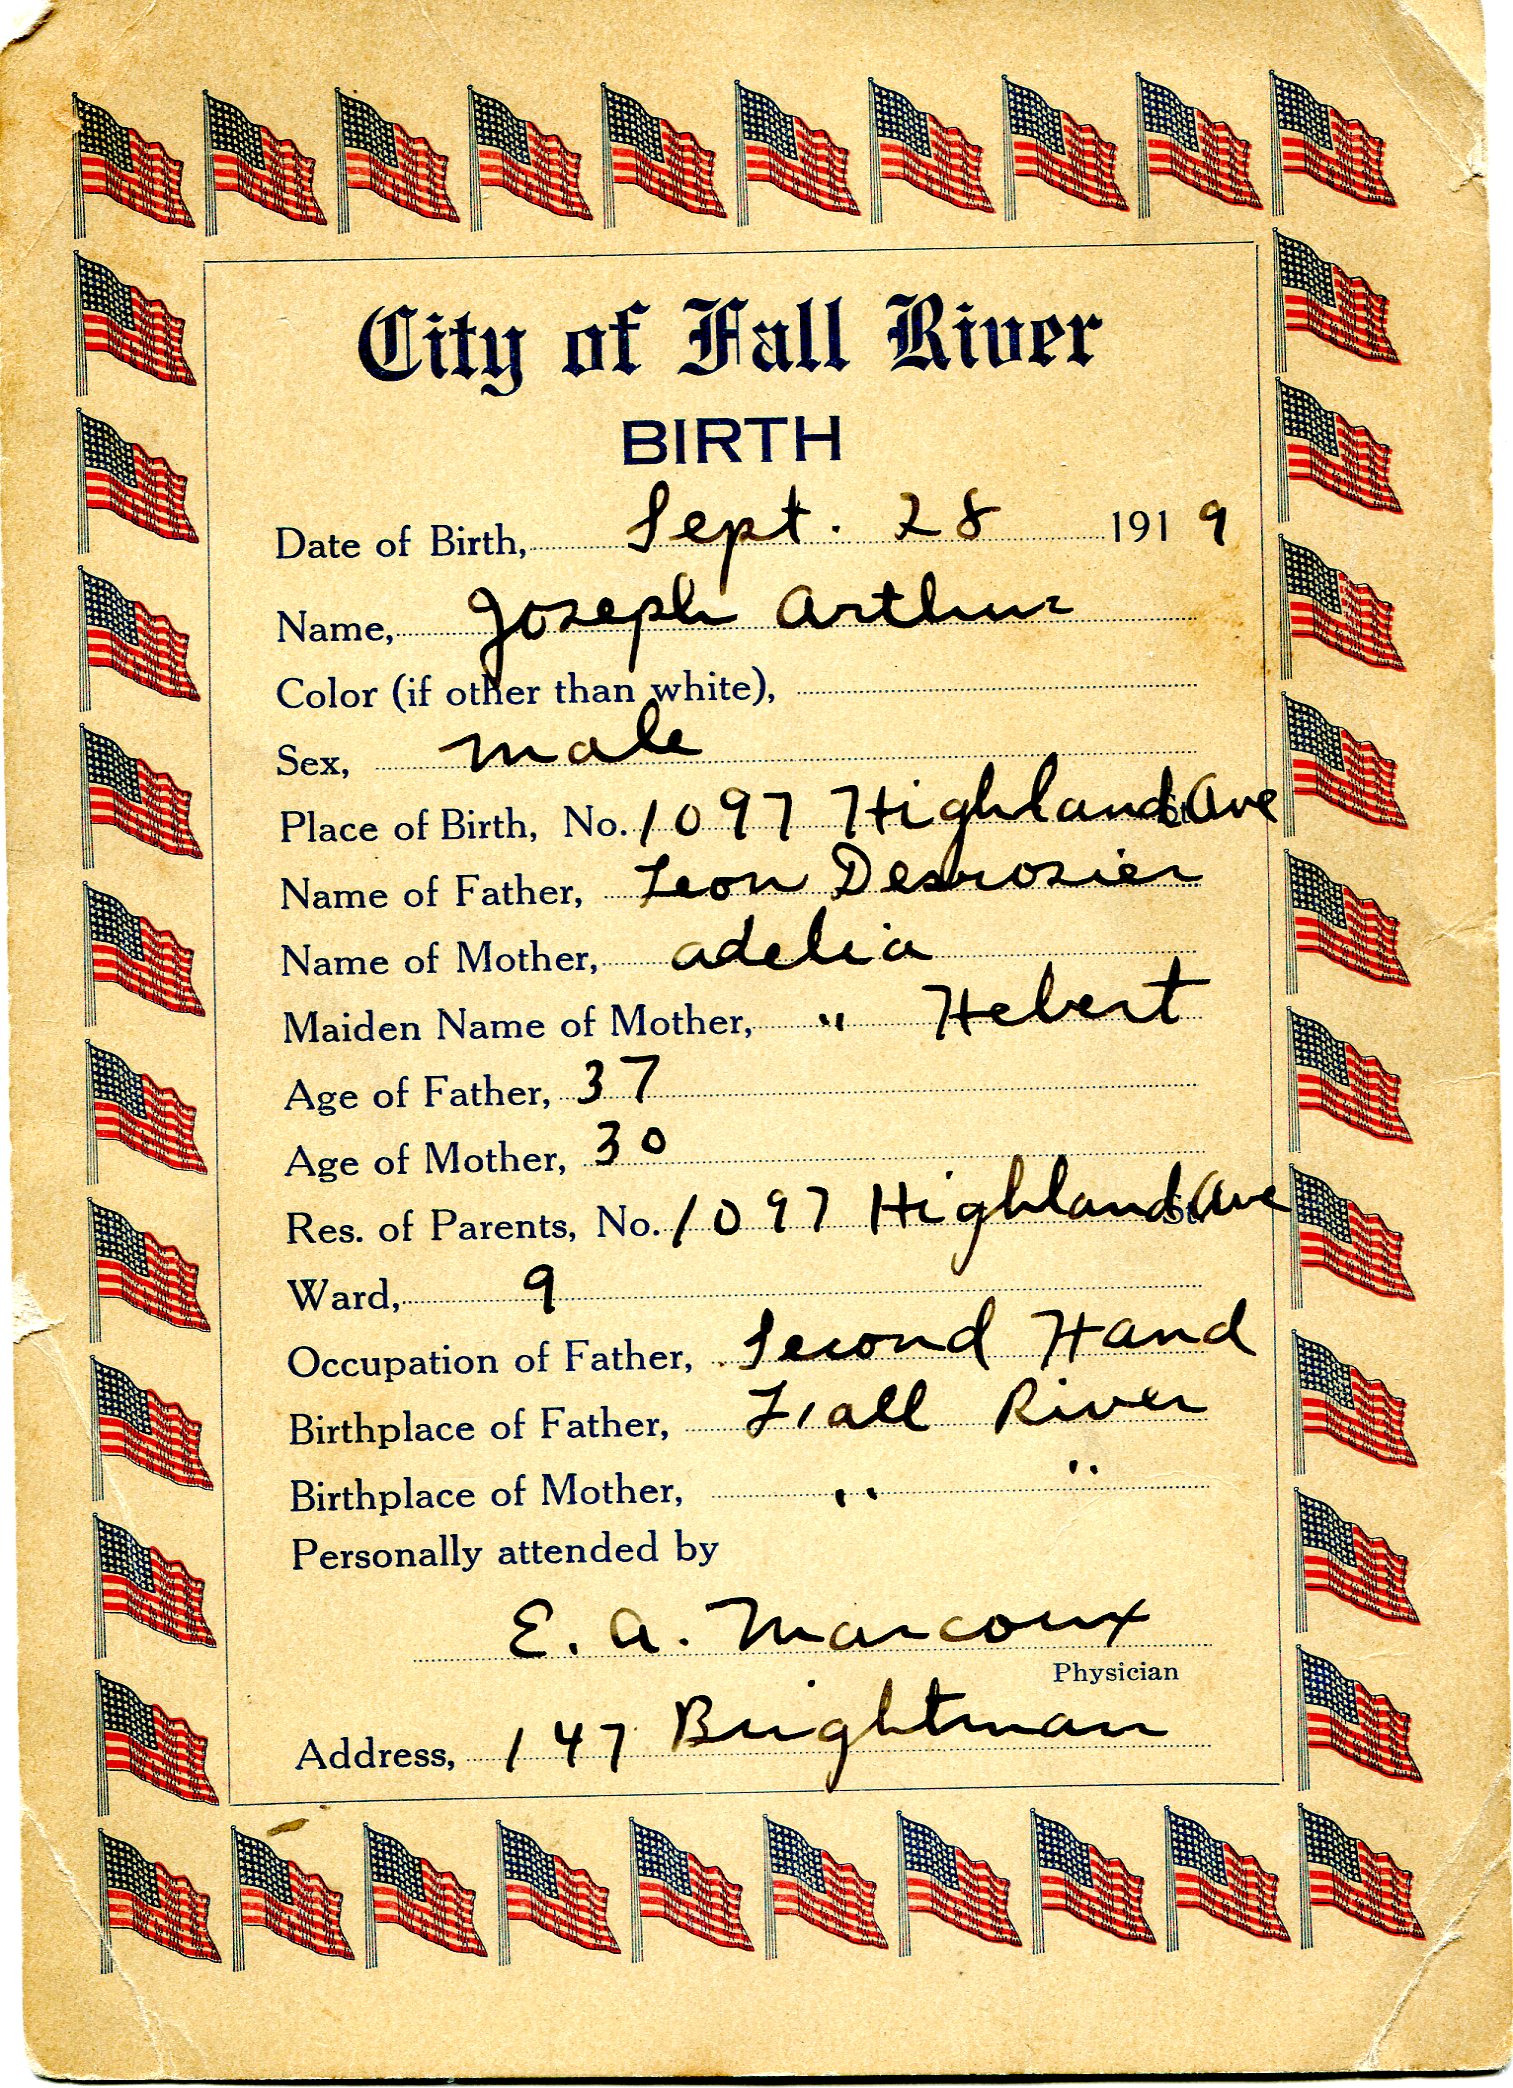 City of Fall River
BIRTH
Date of Birth, Sept. 28 1919
Name, Joseph Arthur
Color (if other than white),
Sex, male
Place of Birth, No. 1097 Highland Ave
Name of Father, Leon Desrosier
Name of Mother, adelia
Maiden Name of Mother, " Hebert
Age of Father, 37
Age of Mother, 30
Res. of Parents, No. 1097 Highland St. Ave
Ward, 9
Occupation of Father, Second Hand
Birthplace of Father, Fall River
Birthplace of Mother, " "
Personally attended by
E. A. Marcoux
Physician
Address, 147 Brightman